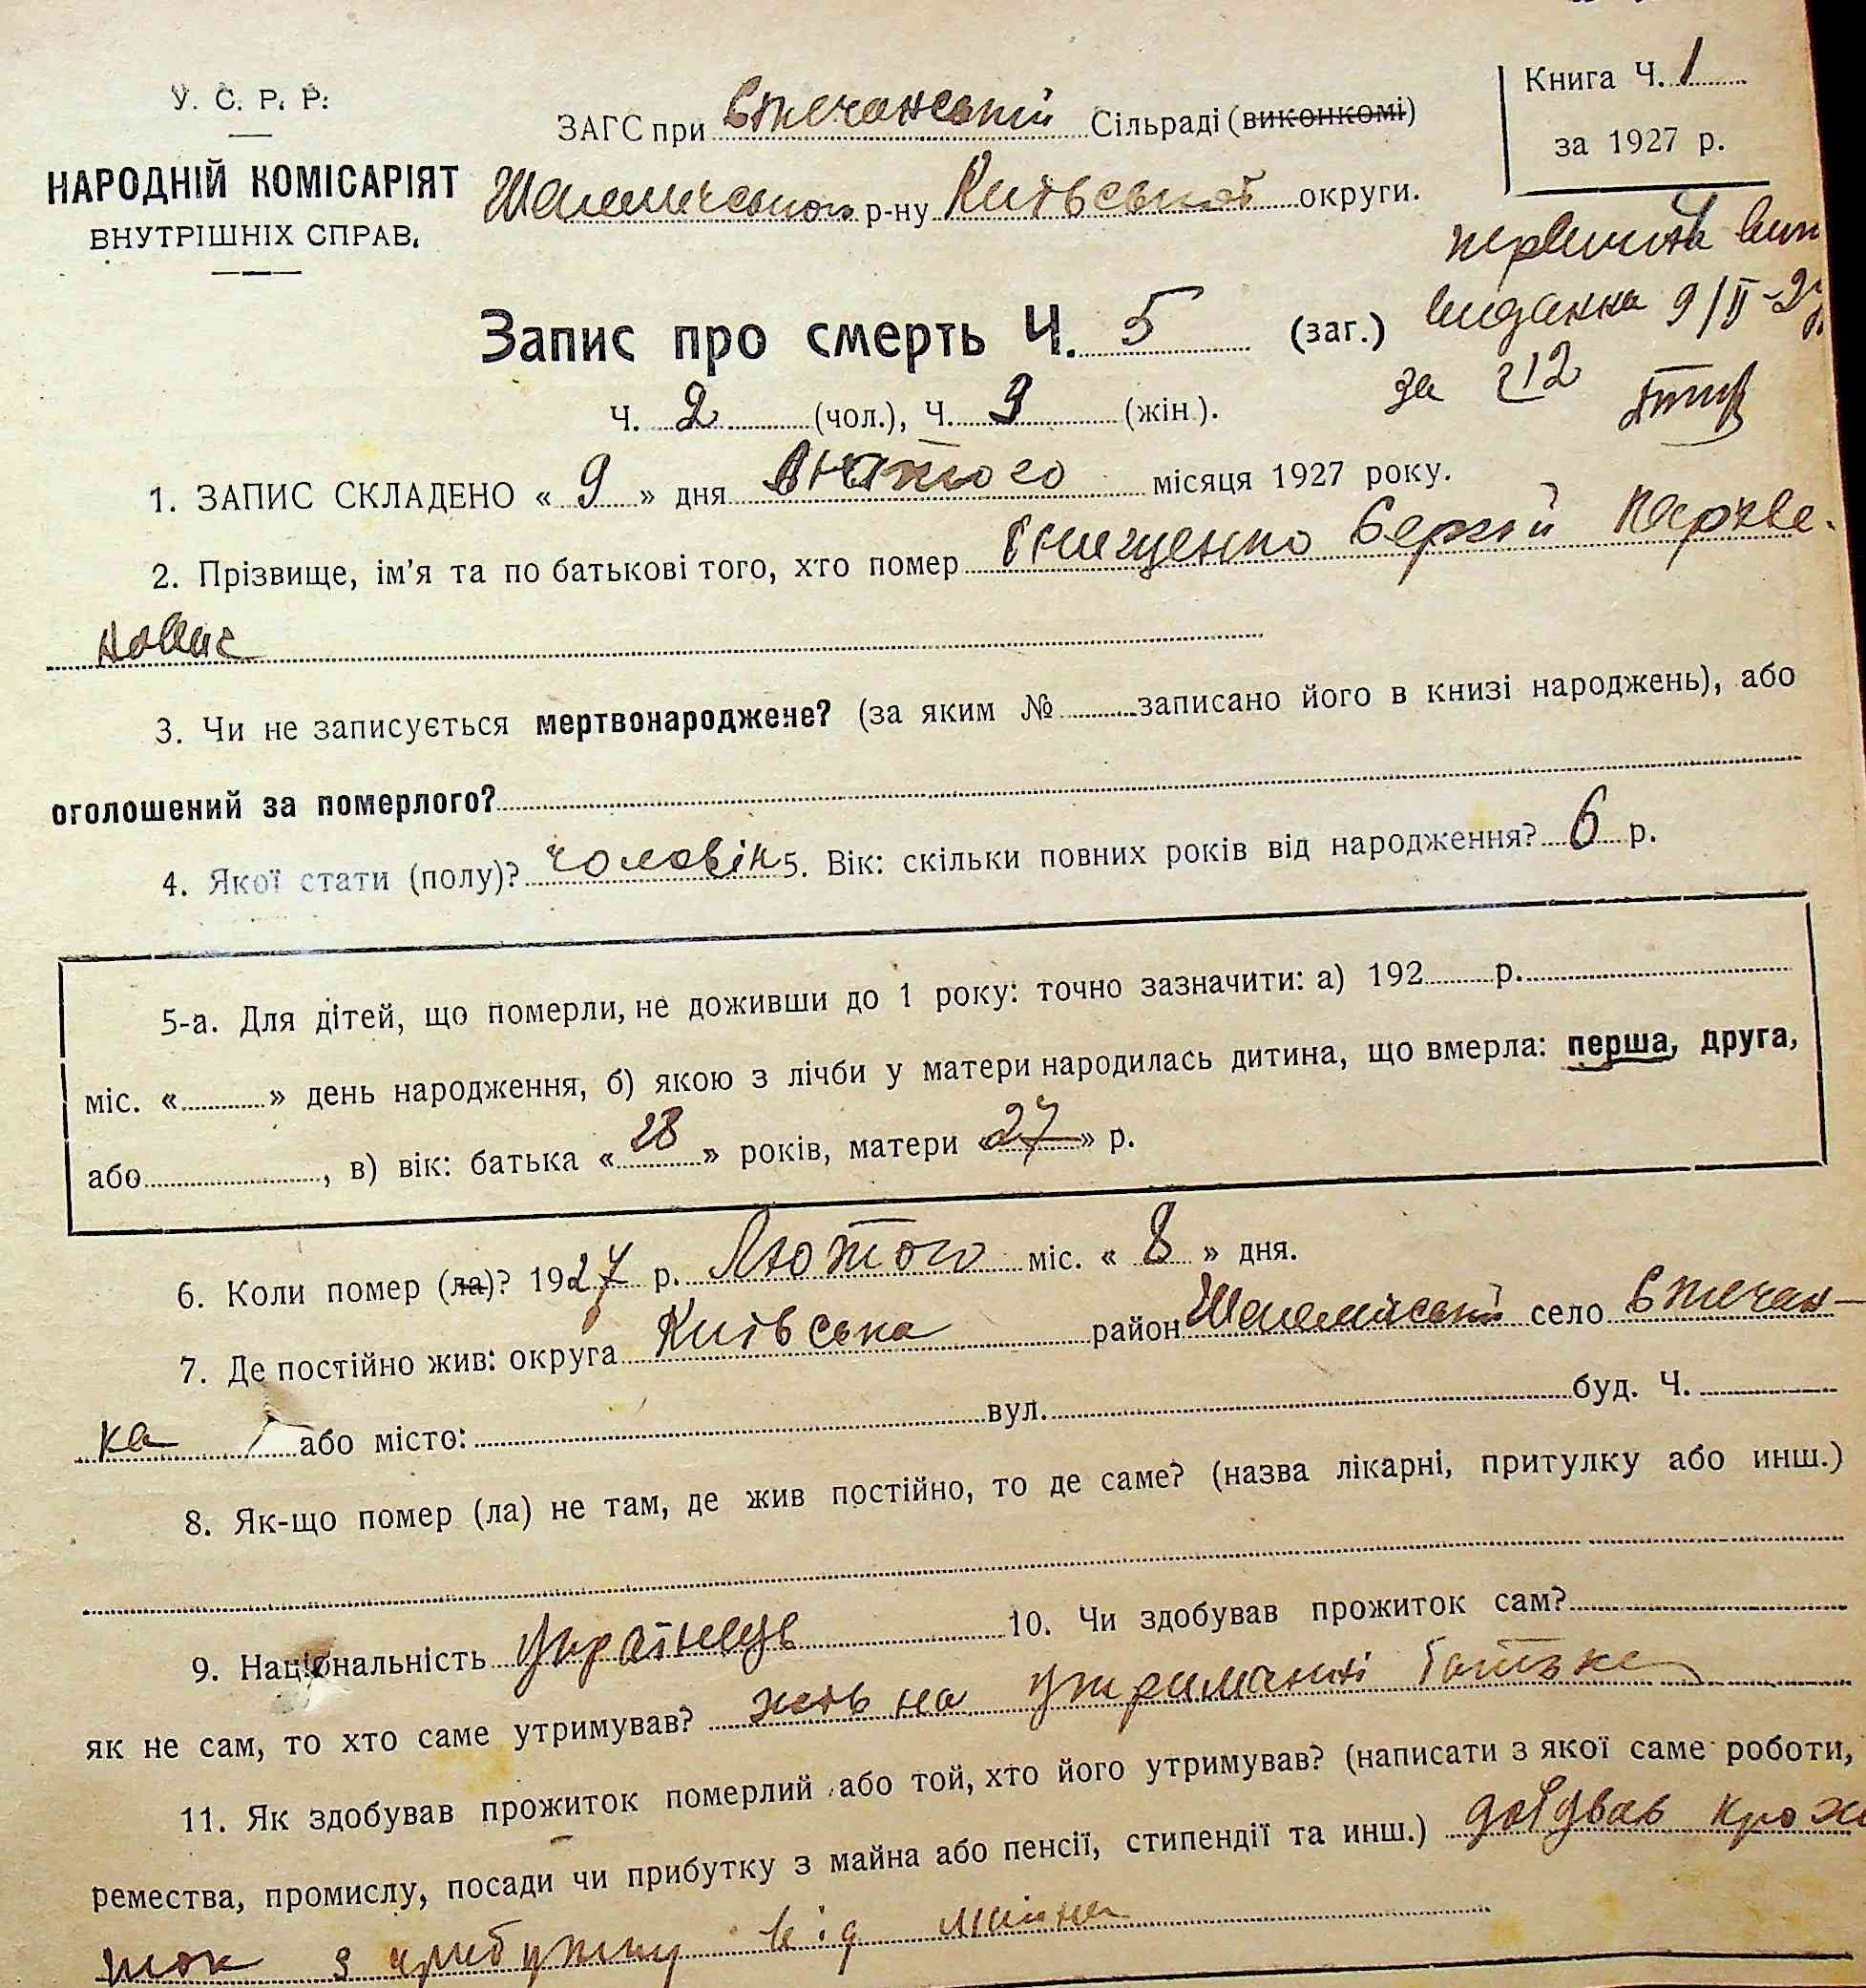 У. С. Р. Р.
НАРОДНІЙ КОМІСАРІЯТ
ВНУТРІШНІХ СПРАВ.
ЗАГС при Стечанській Сільраді (виконкомі)
Шепелицького р-ну Київської округи.
Книга Ч. 1
за 1927 р.
видана 9/II-27
за 212
Запис про смерть Ч. 5 (заг.)
Ч. 2 (чол.), Ч. 3 (жін.).
1. ЗАПИС СКЛАДЕНО « 9 » дня Лютого місяця 1927 року.
2. Прізвище, ім'я та по батькові того, хто помер Онищенко Сергій
3. Чи не записується мертвонароджене? (за яким № записано його в книзі народжень), або
оголошений за померлого?
4. Якої стати (полу)? чоловік 5. Вік: скільки повних років від народження? 6 р.
5-а. Для дітей, що померли, не доживши до 1 року: точно зазначити: а) 192 р.
міс. « » день народження, б) якою з лічби у матери народилась дитина, що вмерла: перша, друга,
або , в) вік: батька « 28 » років, матери « 27 » р.
6. Коли помер (ла)? 1927 р. Лютого міс. « 8 » дня.
7. Де постійно жив: округа Київська район Шепелицький село Стечан-
ка або місто: вул. буд. Ч.
8. Як-що помер (ла) не там, де жив постійно, то де саме? (назва лікарні, притулку або инш.)
9. Національність українець 10. Чи здобував прожиток сам?
як не сам, то хто саме утримував? жив на утриманні батька
11. Як здобував прожиток померлий або той, хто його утримував? (написати з якої саме роботи,
ремества, промислу, посади чи прибутку з майна або пенсії, стипендії та инш.) добував прожи
ток з прибутку від майна